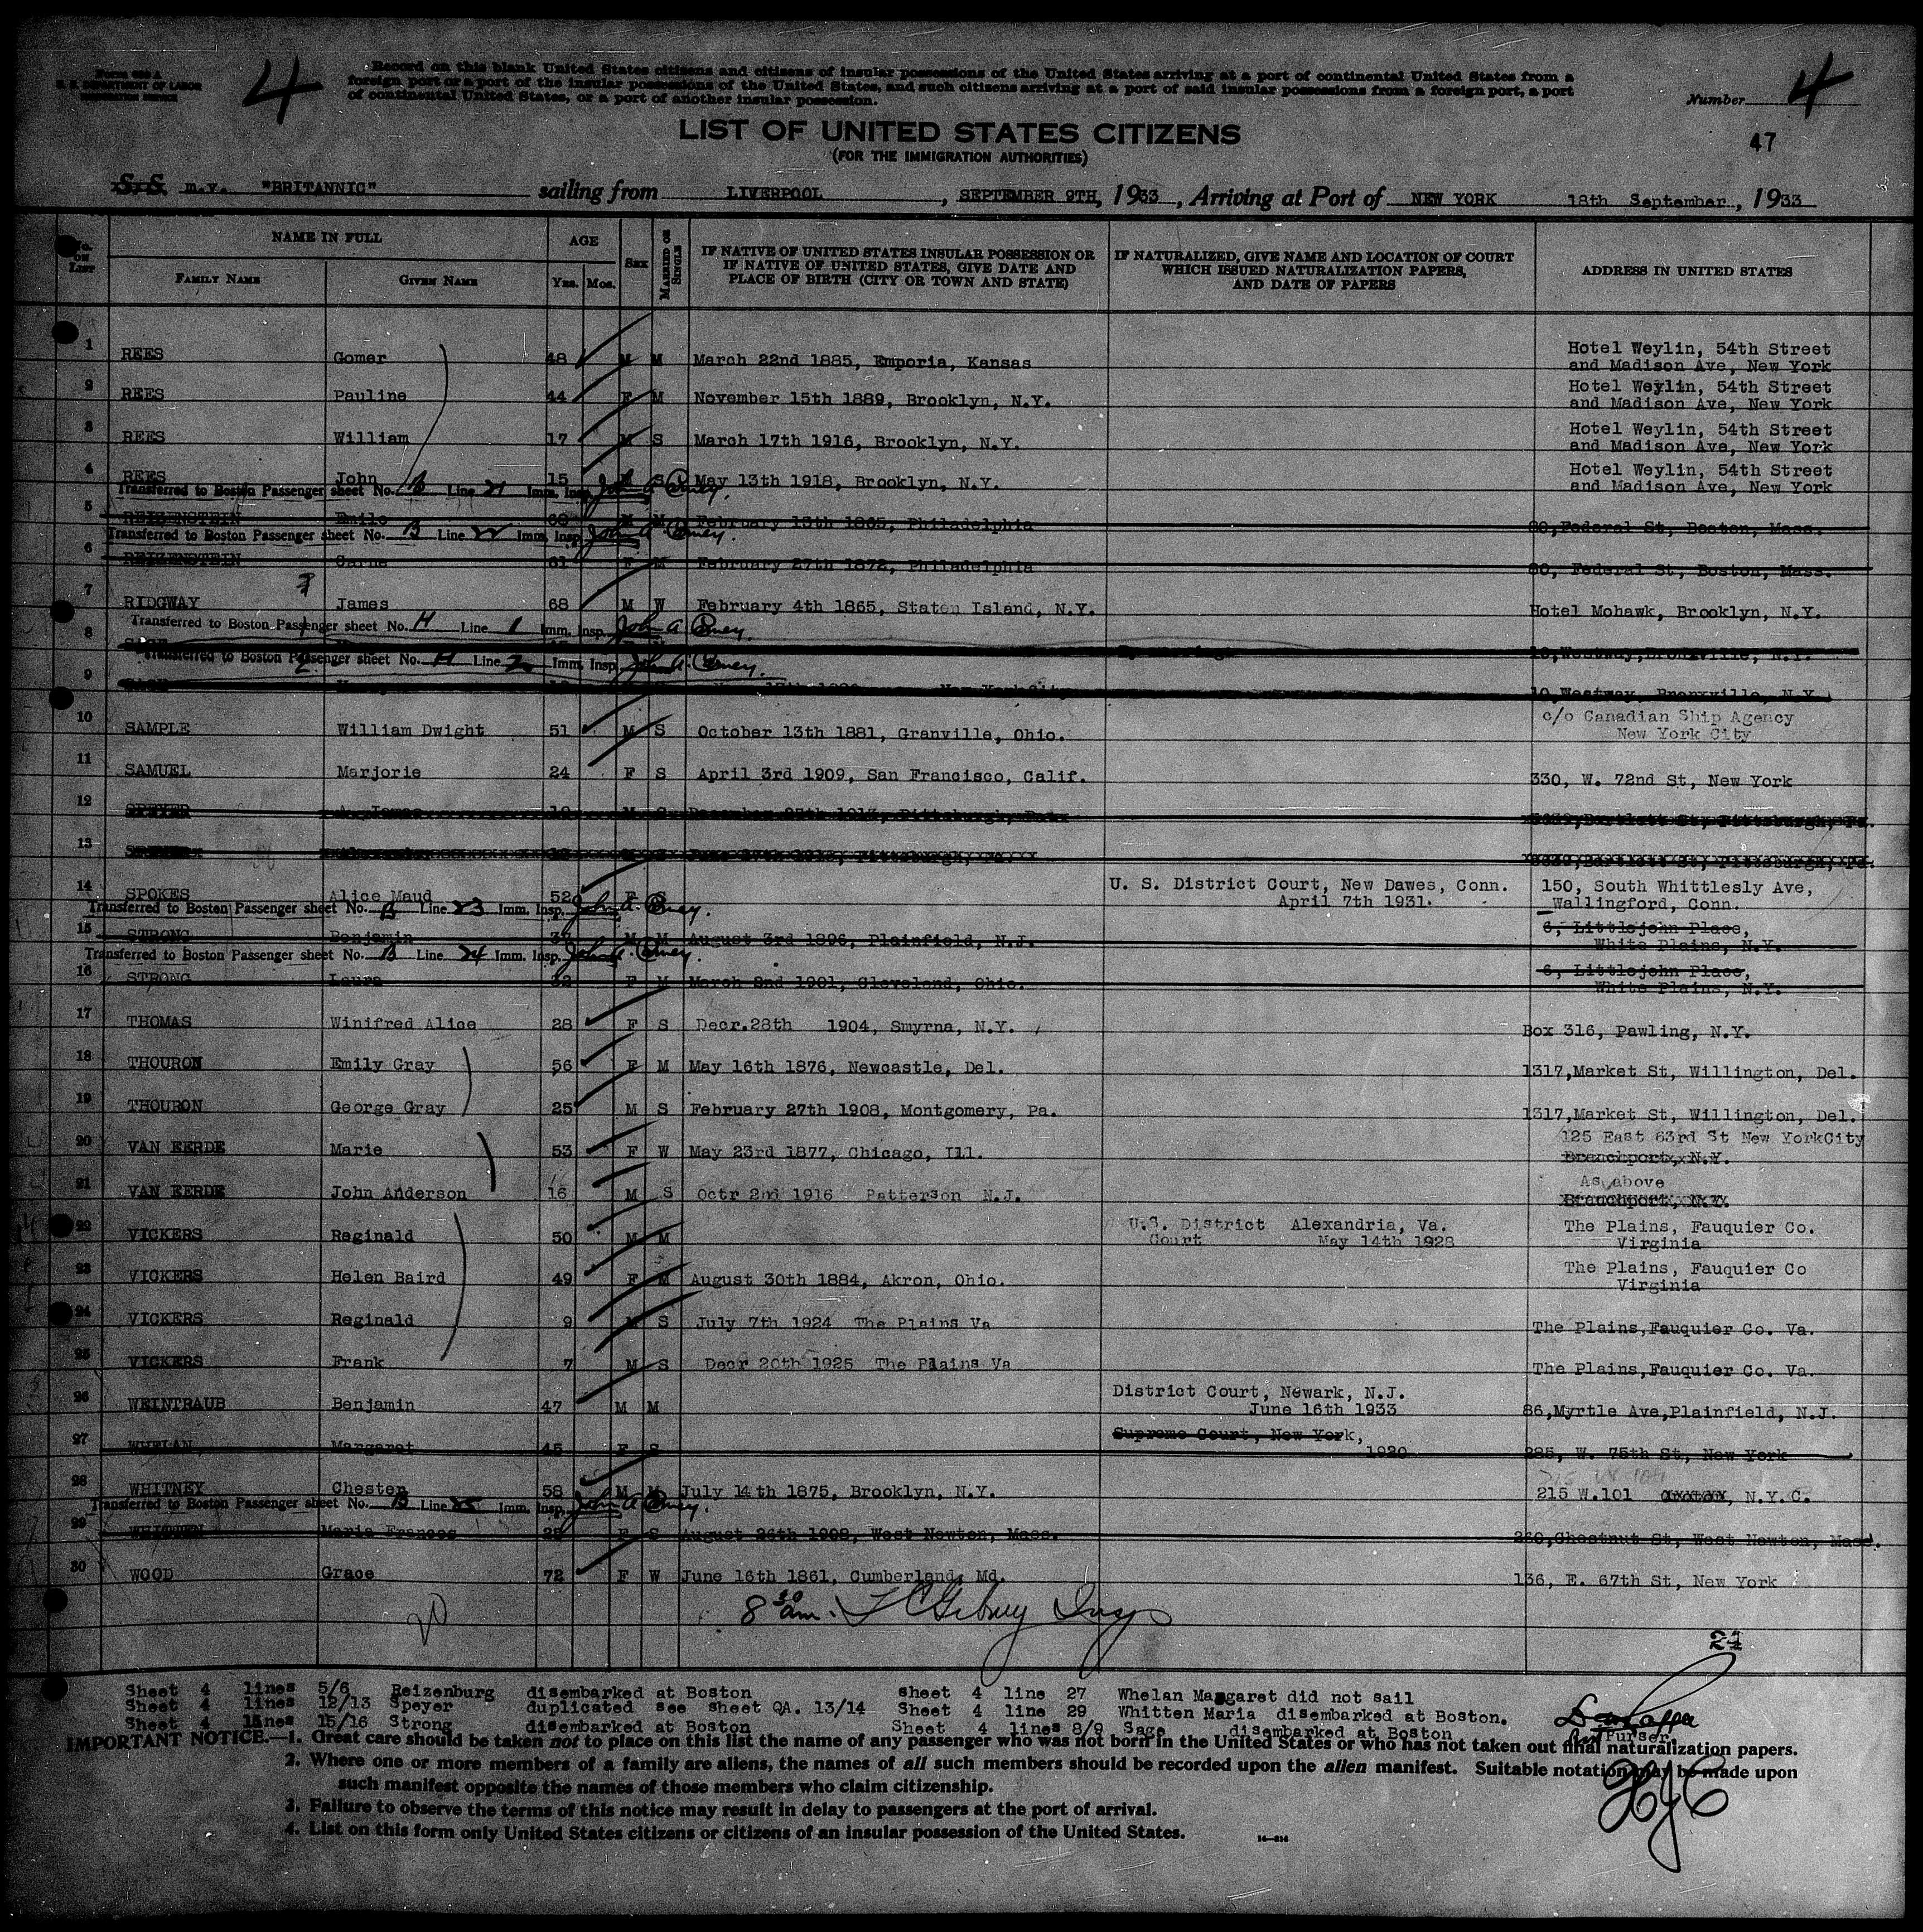 Form 630 A
U. S. DEPARTMENT OF LABOR
IMMIGRATION SERVICE
4
Record on this blank United States citizens and citizens of insular possessions of the United States arriving at a port of continental United States from a
foreign port or a port of the insular possessions of the United States, and such citizens arriving at a port of said insular possessions from a foreign port, a port
of continental United States, or a port of another insular possession.
Number 4
LIST OF UNITED STATES CITIZENS
47
(FOR THE IMMIGRATION AUTHORITIES)
S.S. m.v. "BRITANNIC" sailing from LIVERPOOL, SEPTEMBER 9TH, 1933, Arriving at Port of NEW YORK 18th September, 1933
No. ON LIST
NAME IN FULL
FAMILY NAME GIVEN NAME
AGE
Yrs. Mos.
Sex
MARRIED OR SINGLE
IF NATIVE OF UNITED STATES INSULAR POSSESSION OR
IF NATIVE OF UNITED STATES, GIVE DATE AND
PLACE OF BIRTH (CITY OR TOWN AND STATE)
IF NATURALIZED, GIVE NAME AND LOCATION OF COURT
WHICH ISSUED NATURALIZATION PAPERS,
AND DATE OF PAPERS
ADDRESS IN UNITED STATES
1 REES Gomer 48 M M March 22nd 1885, Emporia, Kansas Hotel Weylin, 54th Street
and Madison Ave, New York
2 REES Pauline 44 F M November 15th 1889, Brooklyn, N.Y. Hotel Weylin, 54th Street
and Madison Ave, New York
3 REES William 17 M S March 17th 1916, Brooklyn, N.Y. Hotel Weylin, 54th Street
and Madison Ave, New York
4 REES John 15 M S May 13th 1918, Brooklyn, N.Y. Hotel Weylin, 54th Street
and Madison Ave, New York
Transferred to Boston Passenger sheet No. B Line 21 Imm. Insp.
5 REIZENSTEIN Emile 68 M M February 13th 1865, Philadelphia 80, Federal St, Boston, Mass.
Transferred to Boston Passenger sheet No. B Line 22 Imm. Insp.
6 REIZENSTEIN 61 F M February 27th 1872, Philadelphia 80, Federal St, Boston, Mass.
7 RIDGWAY James 68 M W February 4th 1865, Staten Island, N.Y. Hotel Mohawk, Brooklyn, N.Y.
Transferred to Boston Passenger sheet No. H Line 1 Imm. Insp.
8 SAGE 10, Westway, Bronxville, N.Y.
Transferred to Boston Passenger sheet No. H Line 2 Imm. Insp.
9 SAGE New York City 10 Westway, Bronxville, N.Y.
10 SAMPLE William Dwight 51 M S October 13th 1881, Granville, Ohio. c/o Canadian Ship Agency
New York City
11 SAMUEL Marjorie 24 F S April 3rd 1909, San Francisco, Calif. 330, W. 72nd St, New York
12 SPEYER A. James 19 M S Pittsburgh, Bartlett St, Pittsburgh, Pa.
13 SPEYER Pittsburgh, Bartlett St, Pittsburgh, Pa.
14 SPOKES Alice Maud 52 F S U. S. District Court, New Dawes, Conn.
April 7th 1931. 150, South Whittlesly Ave,
Wallingford, Conn.
Transferred to Boston Passenger sheet No. B Line 23 Imm. Insp.
15 STRONG Benjamin M M August 3rd 1896, Plainfield, N.J. 6, Littlejohn Place,
White Plains, N.Y.
Transferred to Boston Passenger sheet No. B Line 24 Imm. Insp.
16 STRONG Laura 32 F M March 2nd 1901, Cleveland, Ohio. 6, Littlejohn Place,
White Plains, N.Y.
17 THOMAS Winifred Alice 28 F S Decr.28th 1904, Smyrna, N.Y. Box 316, Pawling, N.Y.
18 THOURON Emily Gray 56 F M May 16th 1876, Newcastle, Del. 1317,Market St, Willington, Del.
19 THOURON George Gray 25 M S February 27th 1908, Montgomery, Pa. 1317,Market St, Willington, Del.
20 VAN EERDE Marie 53 F W May 23rd 1877, Chicago, Ill. 125 East 63rd St New YorkCity
Branchport, N.Y.
21 VAN EERDE John Anderson 16 M S Octr 2nd 1916 Patterson N.J. As above
Branchport, N.Y.
22 VICKERS Reginald 50 M M U.S. District Alexandria, Va.
Court May 14th 1928 The Plains, Fauquier Co.
Virginia
23 VICKERS Helen Baird 49 F M August 30th 1884, Akron, Ohio. The Plains, Fauquier Co
Virginia
24 VICKERS Reginald 9 M S July 7th 1924 The Plains Va The Plains,Fauquier Co. Va.
25 VICKERS Frank 7 M S Decr 20th 1925 The Plains Va The Plains,Fauquier Co. Va.
26 WEINTRAUB Benjamin 47 M M District Court, Newark, N.J.
June 16th 1933 86,Myrtle Ave,Plainfield, N.J.
27 WHELAN Margaret 45 F S Supreme Court, New York,
1920 285, W. 75th St, New York
28 WHITNEY Chester 58 M M July 14th 1875, Brooklyn, N.Y. 215 W.101 N.Y.C.
Transferred to Boston Passenger sheet No. B Line 25 Imm. Insp.
29 WHITTEN Maria Frances 25 F S August 26th 1908, West Newton, Mass. 260,Chestnut St, West Newton, Mass.
30 WOOD Grace 72 F W June 16th 1861, Cumberland, Md. 136, E. 67th St, New York
20
8 30 am.
21
Sheet 4 lines 5/6 Reizenburg disembarked at Boston sheet 4 line 27 Whelan Margaret did not sail
Sheet 4 lines 12/13 Speyer duplicated see sheet QA. 13/14 Sheet 4 line 29 Whitten Maria disembarked at Boston.
Sheet 4 lines 15/16 Strong disembarked at Boston Sheet 4 lines 8/9 Sage disembarked at Boston
Purser.
IMPORTANT NOTICE.—1. Great care should be taken not to place on this list the name of any passenger who was not born in the United States or who has not taken out final naturalization papers.
2. Where one or more members of a family are aliens, the names of all such members should be recorded upon the alien manifest. Suitable notation may be made upon
such manifest opposite the names of those members who claim citizenship.
3. Failure to observe the terms of this notice may result in delay to passengers at the port of arrival.
4. List on this form only United States citizens or citizens of an insular possession of the United States.
14—814